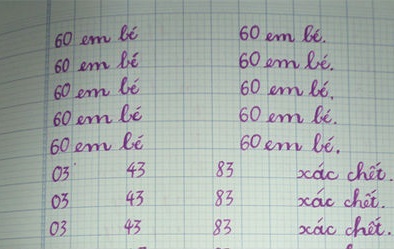 60 em bé 60 em bé.
60 em bé 60 em bé.
60 em bé 60 em bé.
60 em bé 60 em bé.
60 em bé 60 em bé.
03 43 83 xác chết.
03 43 83 xác chết.
03 43 83 xác chết.